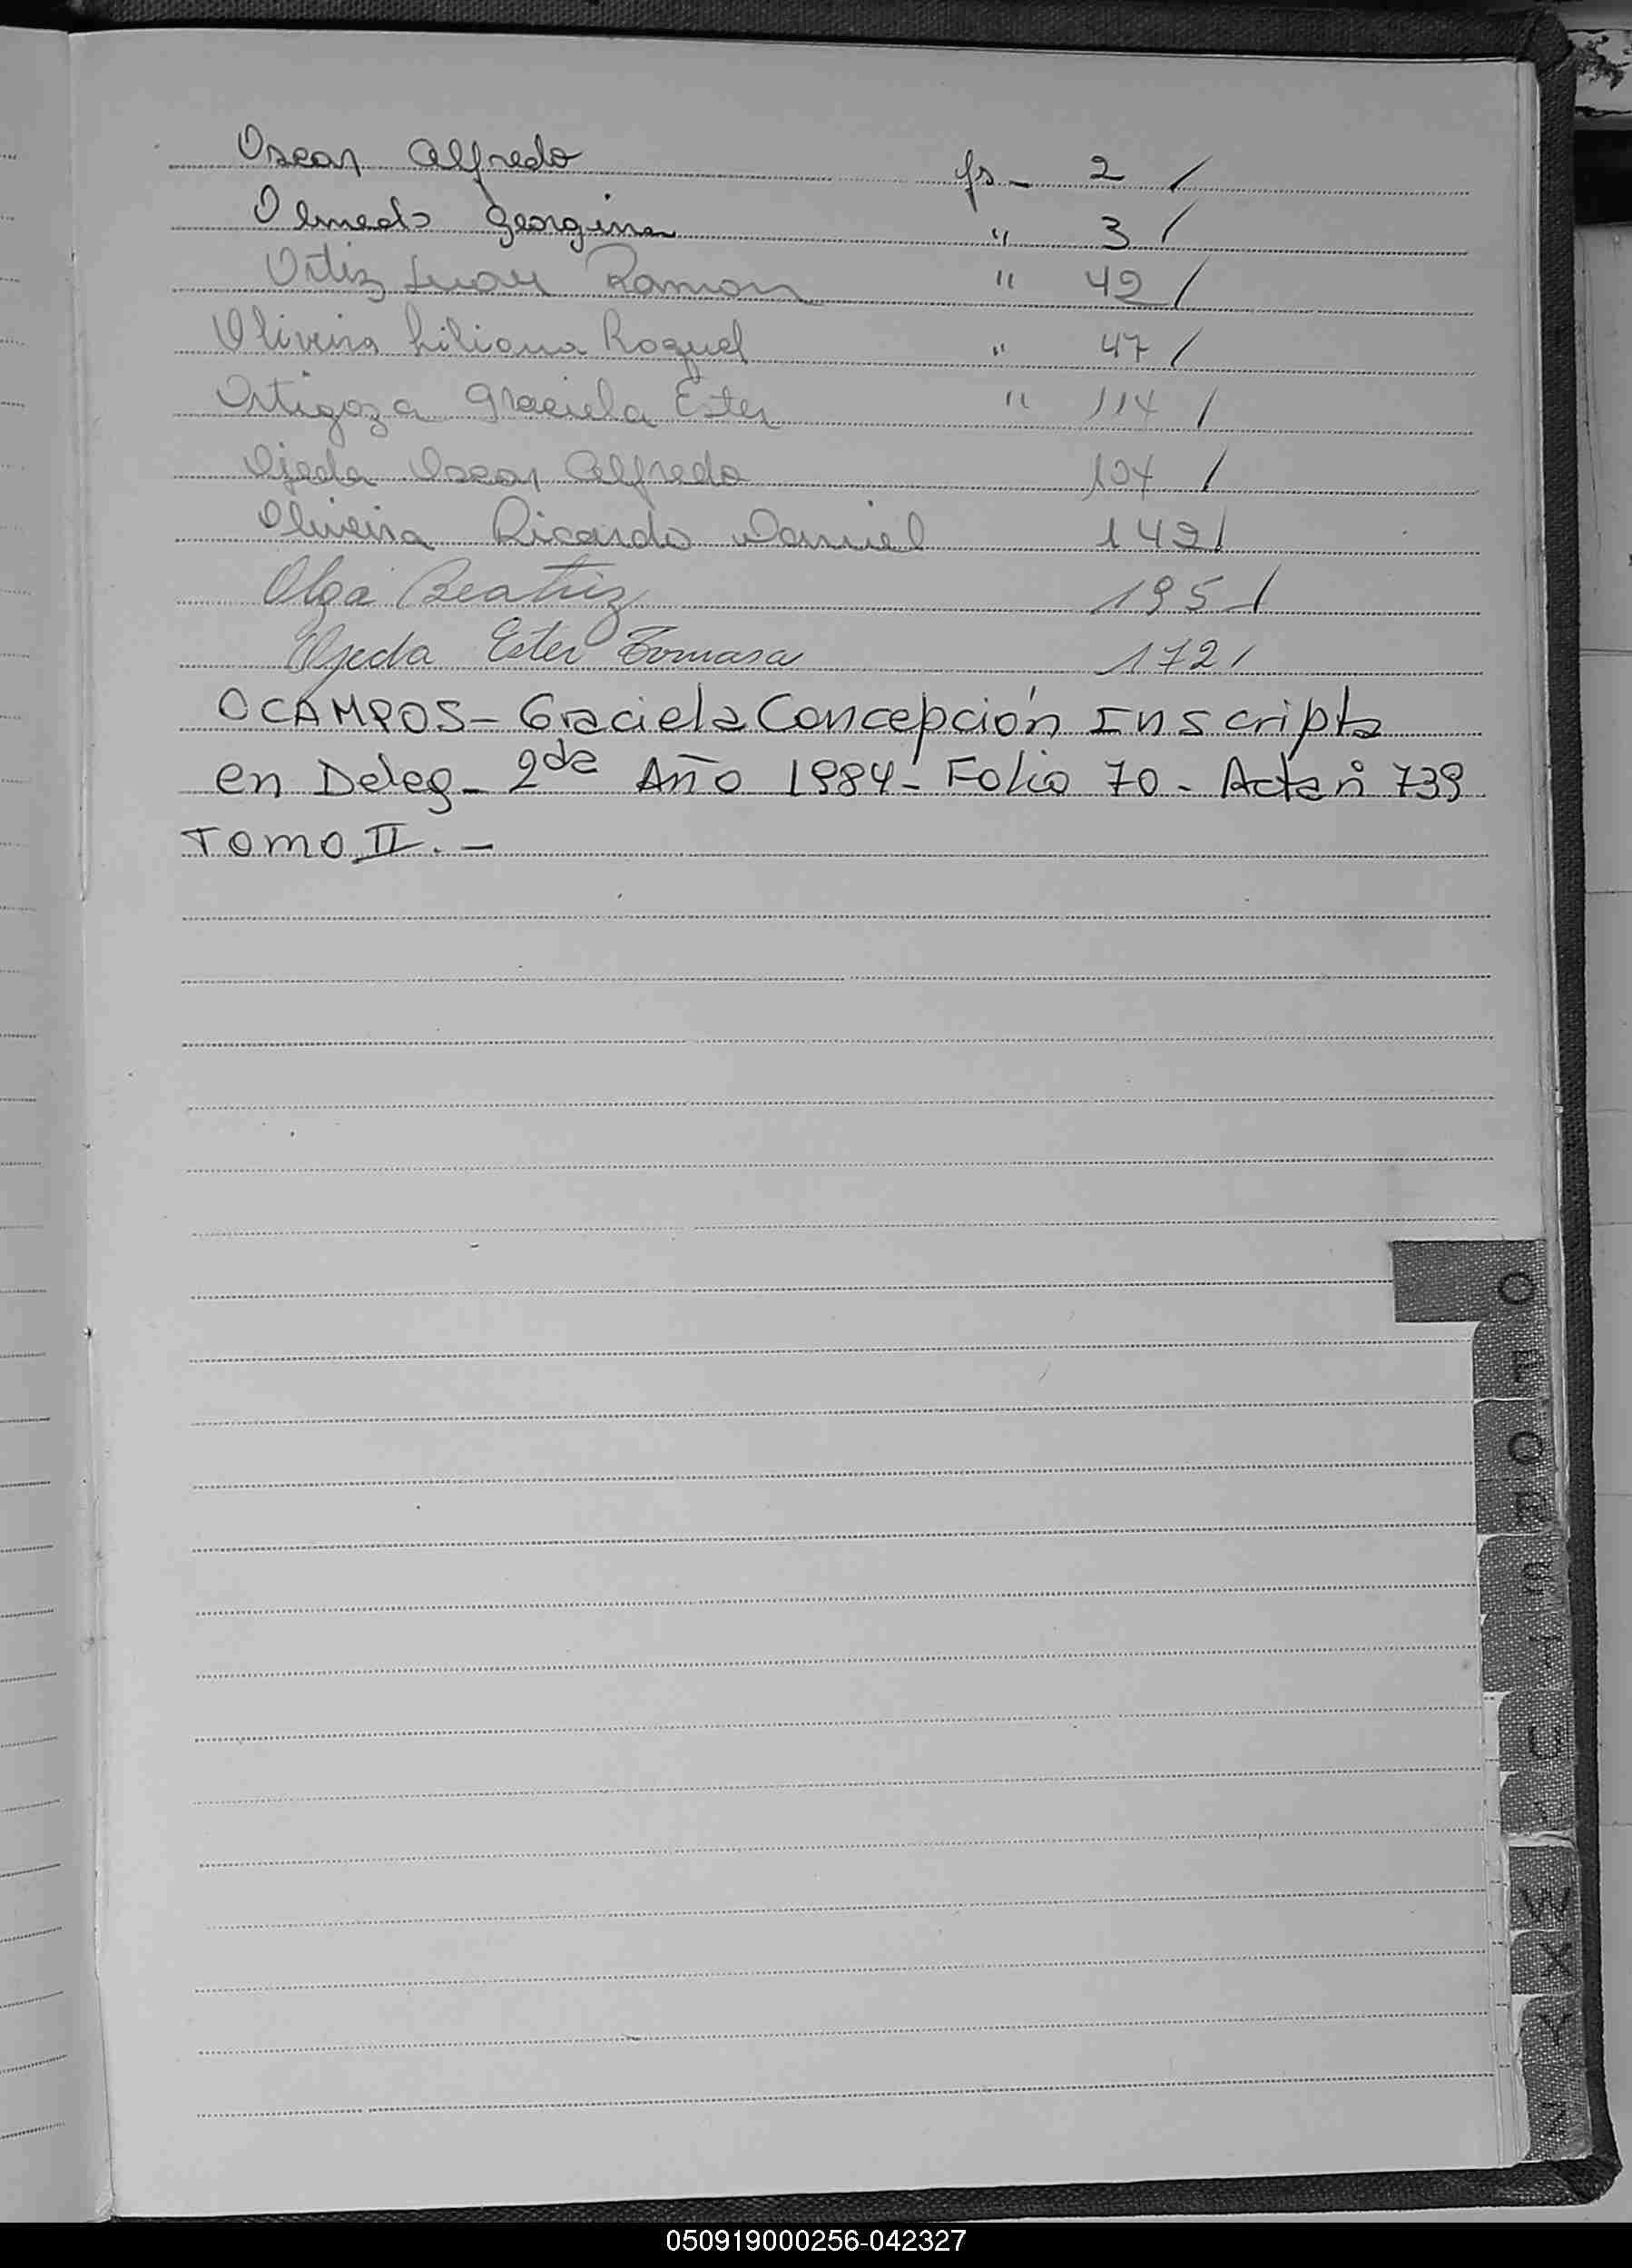 Oscar Alfredo fs - 2 /
Olmedo Georgina " 3 /
Ortiz Juan Ramon " 42 /
Oliveira Liliana Raquel " 47 /
Ortigoza Graciela Ester " 114 /
Ojeda Oscar Alfredo /
Oliveira Ricardo Daniel 142 /
Olga Beatriz 195 /
Ojeda Ester Tomasa 172 /
OCAMPOS - Graciela Concepción Inscripta
en Deleg - 2da Año 1984 - Folio 70 - Acta nº 739
TOMO II . -
O
P
Q
R
S
T
U
V
W
X
Y
Z
050919000256-042327